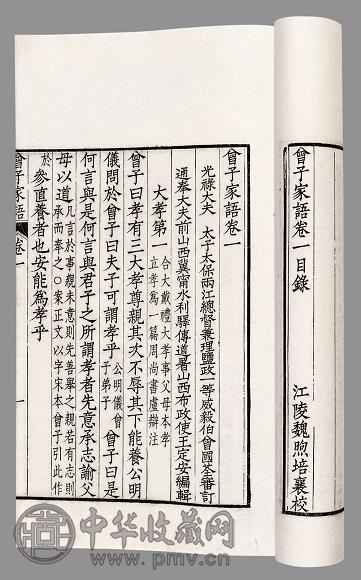 曾子家語卷一目錄
江陵魏煦培襄校
曾子家語卷一
光祿大夫 太子太保兩江總督兼理鹽政一等威毅伯曾國荃審訂
通奉大夫前山西冀甯水利驛傳道署山西布政使王定安編輯
大孝第一 合大戴禮大孝事父母本孝
立孝爲一篇周尚書盧辯注
曾子曰孝有三大孝尊親其次不辱其下能養公明
儀問於曾子曰夫子可謂孝乎 公明儀曾
子弟子 曾子曰是
何言與是何言與君子之所謂孝者先意承志諭父
母以道 凡言於事親未意則先善舉之親若有志則
承而奉之○案正文以字宋本曾子引此作
於 參直養者也安能爲孝乎
曾子家語 卷一
一
中华收藏网
www.pmv.cn